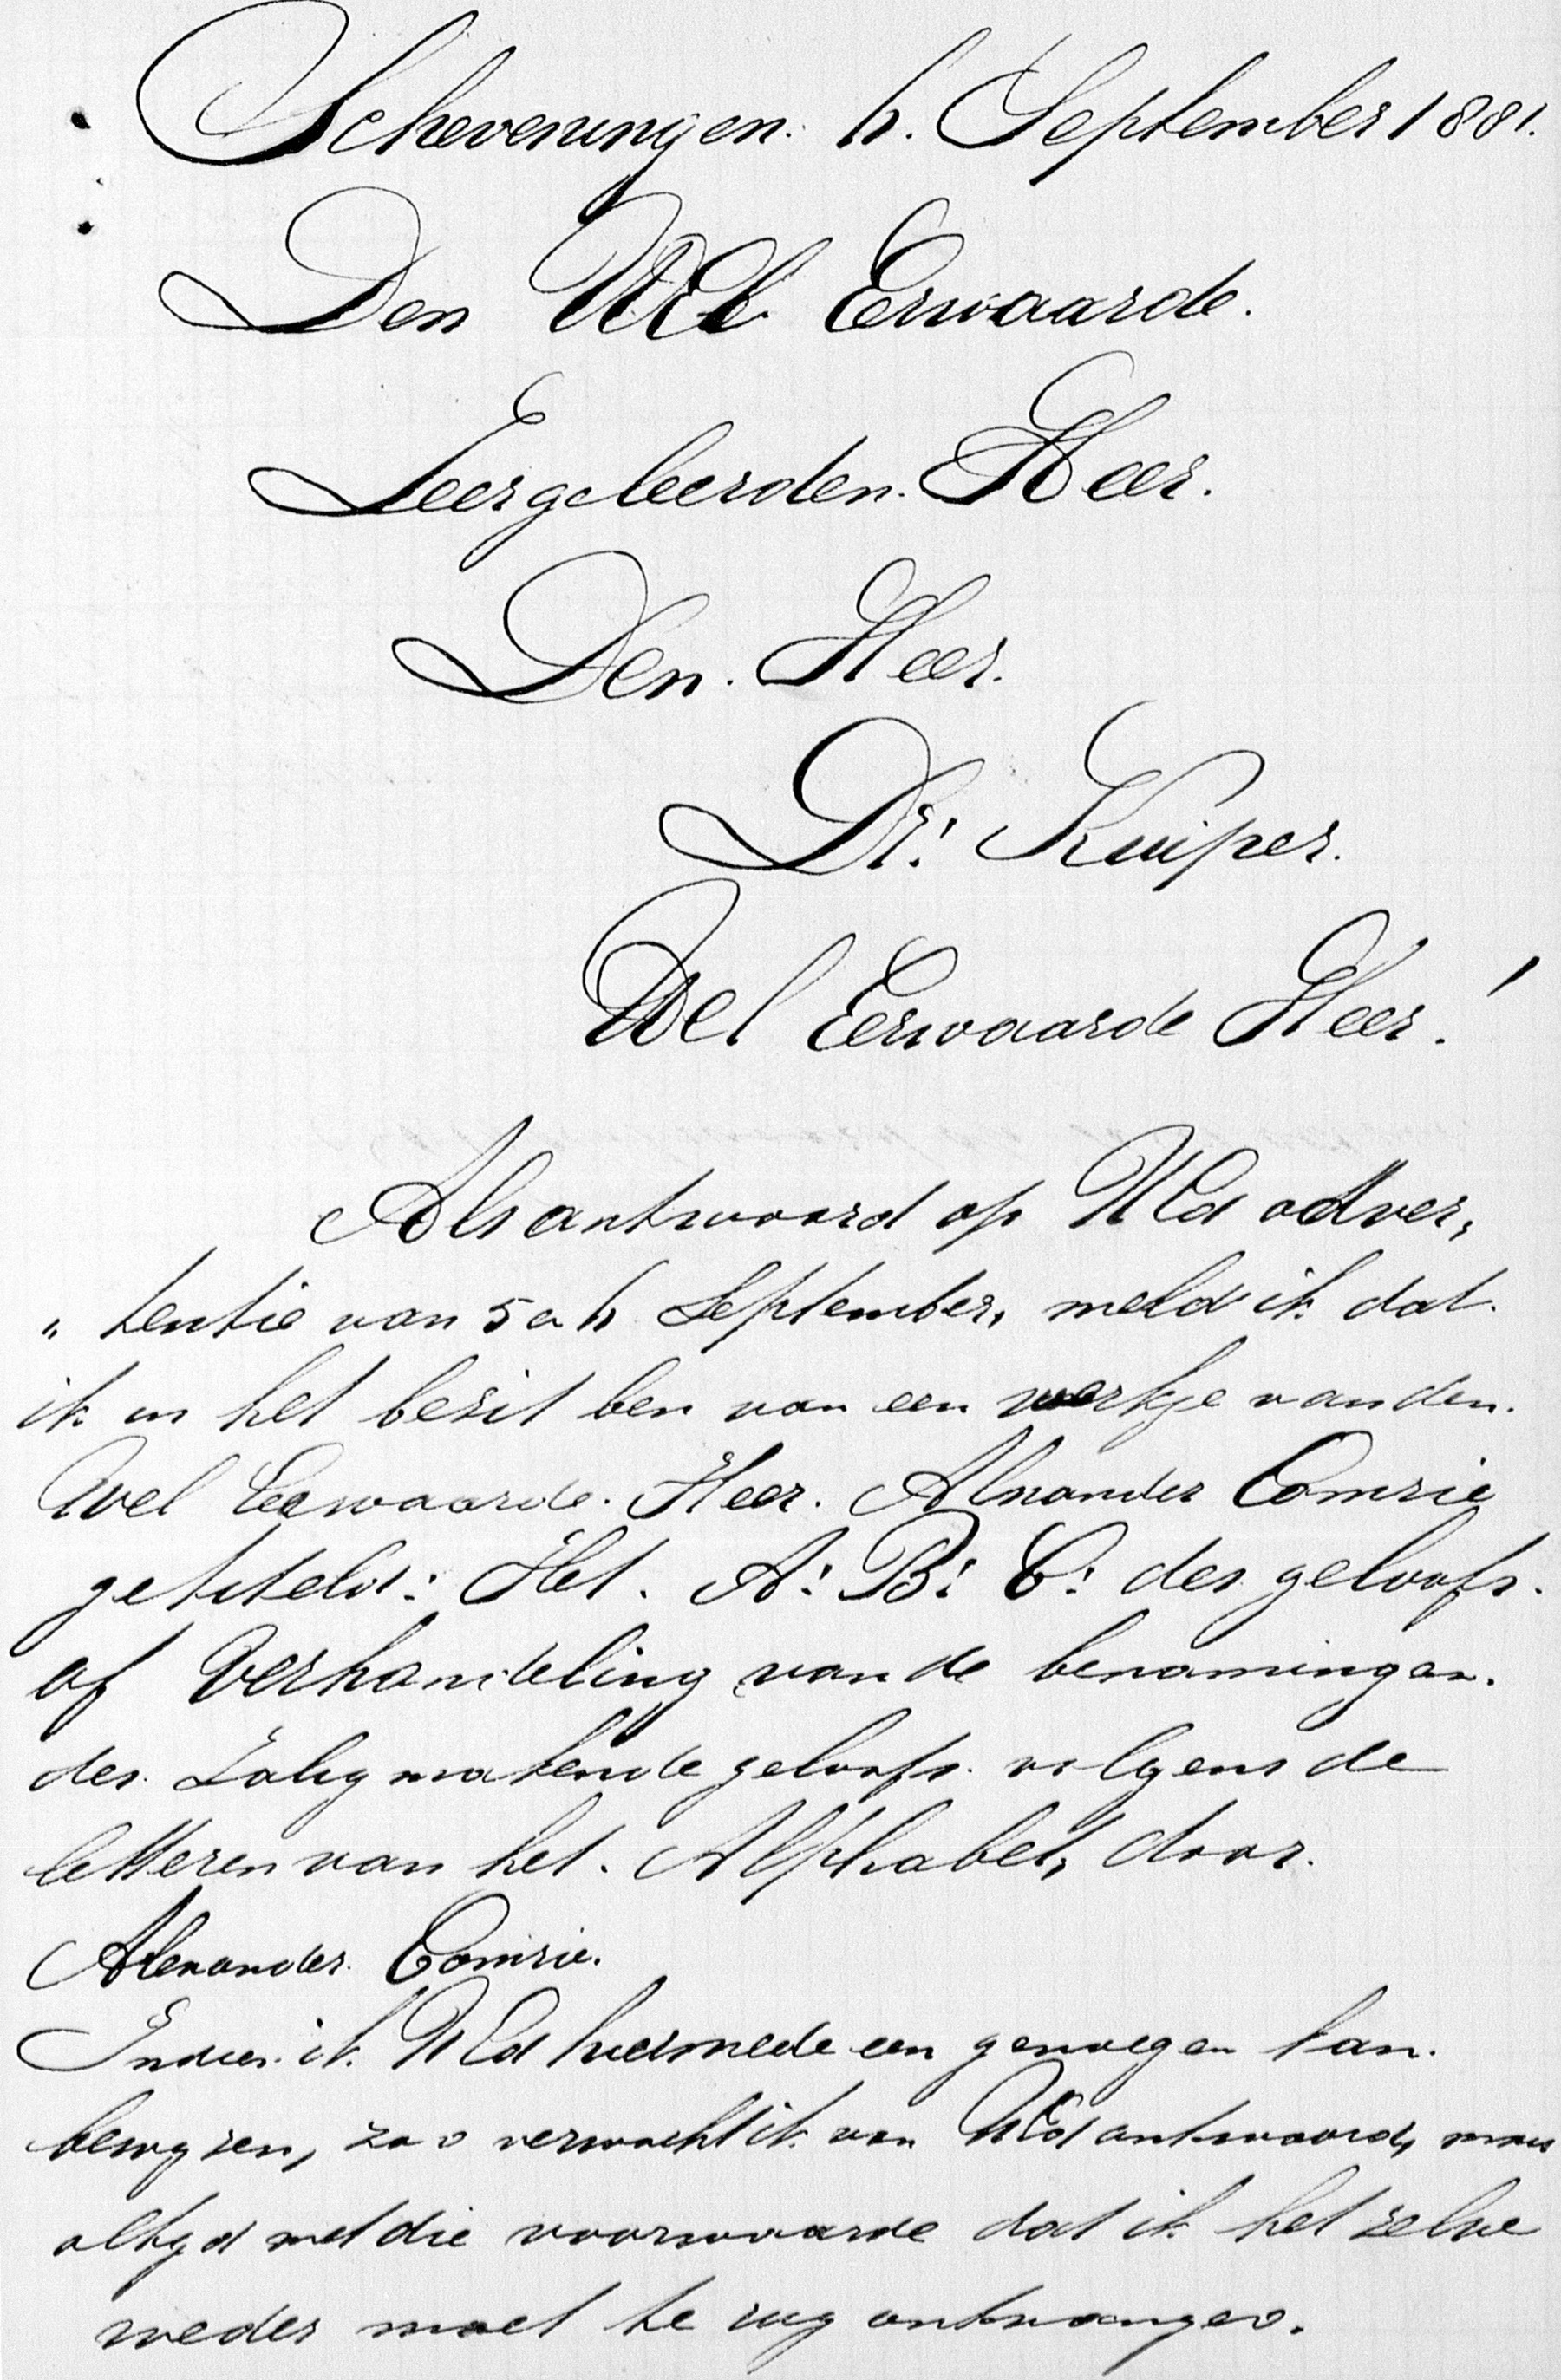 Scheveningen. 6. September 1881.
Den Wel Erwaarde.
Zeergeleerden. Heer.
Den. Heer.
Dr: Kuiper.
Wel Eerwaarde Heer!
Als antwoord op UEd adver„
„ tentie van 5 a 6 September, meld ik dat.
ik in het besit ben van een werkje van den.
Wel Eerwaarde. Heer. Alxander Comrie
getiteld: Het. A: B: C: des geloofs.
of Verhandeling van de benamingen.
des. Zaligmakende geloofs. volgens de
letteren van het. Alphabet, door.
Alexander. Comrie.
Indien ik UEd hiermede een genoegen kan.
bewyzen, zoo verwacht ik van UEd antwoord, maar
altyd met die voorwaarde dat ik het zelve
weder moet te rug ontvangen.